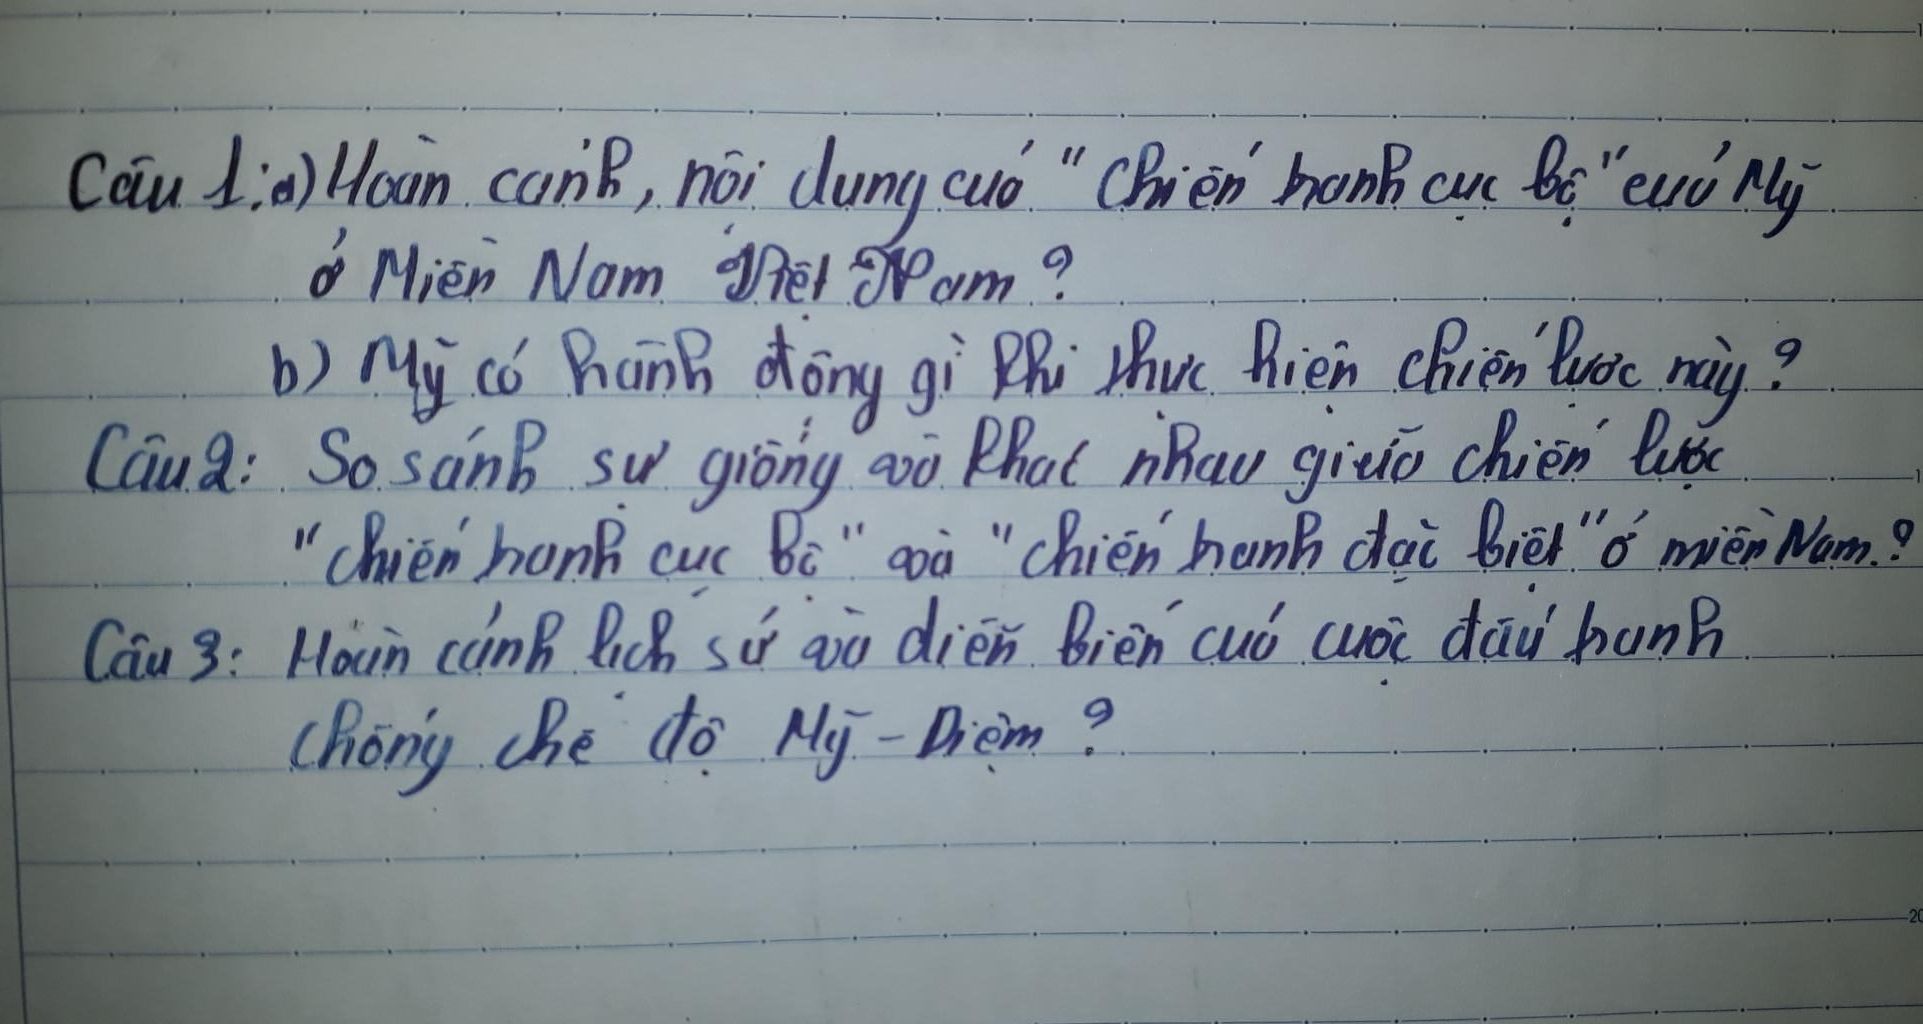 Câu 1: a) Hoàn cảnh, nội dung của "Chiến tranh cục bộ" của Mỹ
ở Miền Nam Việt Nam ?
b) Mỹ có hành động gì khi thực hiện chiến lược này ?
Câu 2: So sánh sự giống và khác nhau giữa chiến lược
"chiến tranh cục bộ" và "chiến tranh đặc biệt" ở miền Nam ?
Câu 3: Hoàn cảnh lịch sử và diễn biến của cuộc đấu tranh
chống chế độ Mỹ - Diệm ?
20